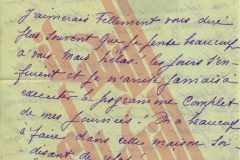 J'aimerais tellement vous dire
plus souvent que je pense beaucoup
à vous. Mais hélas! les jours s'en-
fuient et je n'arrive jamais à
exécuter le programme complet
de mes journées! On a beaucoup
à faire dans cette maison soi-
disant de